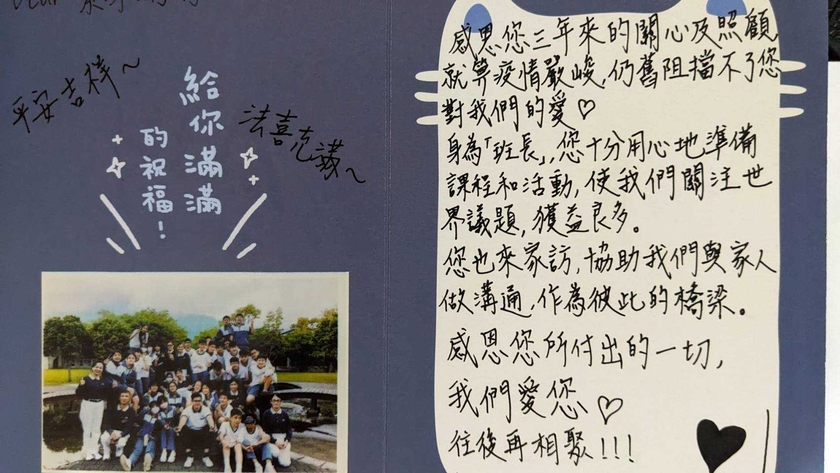 平安吉祥~
給你滿滿
的祝福!
法喜充滿~
感恩您三年來的關心及照顧
就算疫情嚴峻,仍舊阻擋不了您
對我們的愛♡
身為「班長」,您十分用心地準備
課程和活動,使我們關注世
界議題,獲益良多。
您也來家訪,協助我們與家人
做溝通,作為彼此的橋梁。
感恩您所付出的一切,
我們愛您♡
往後再相聚!!!